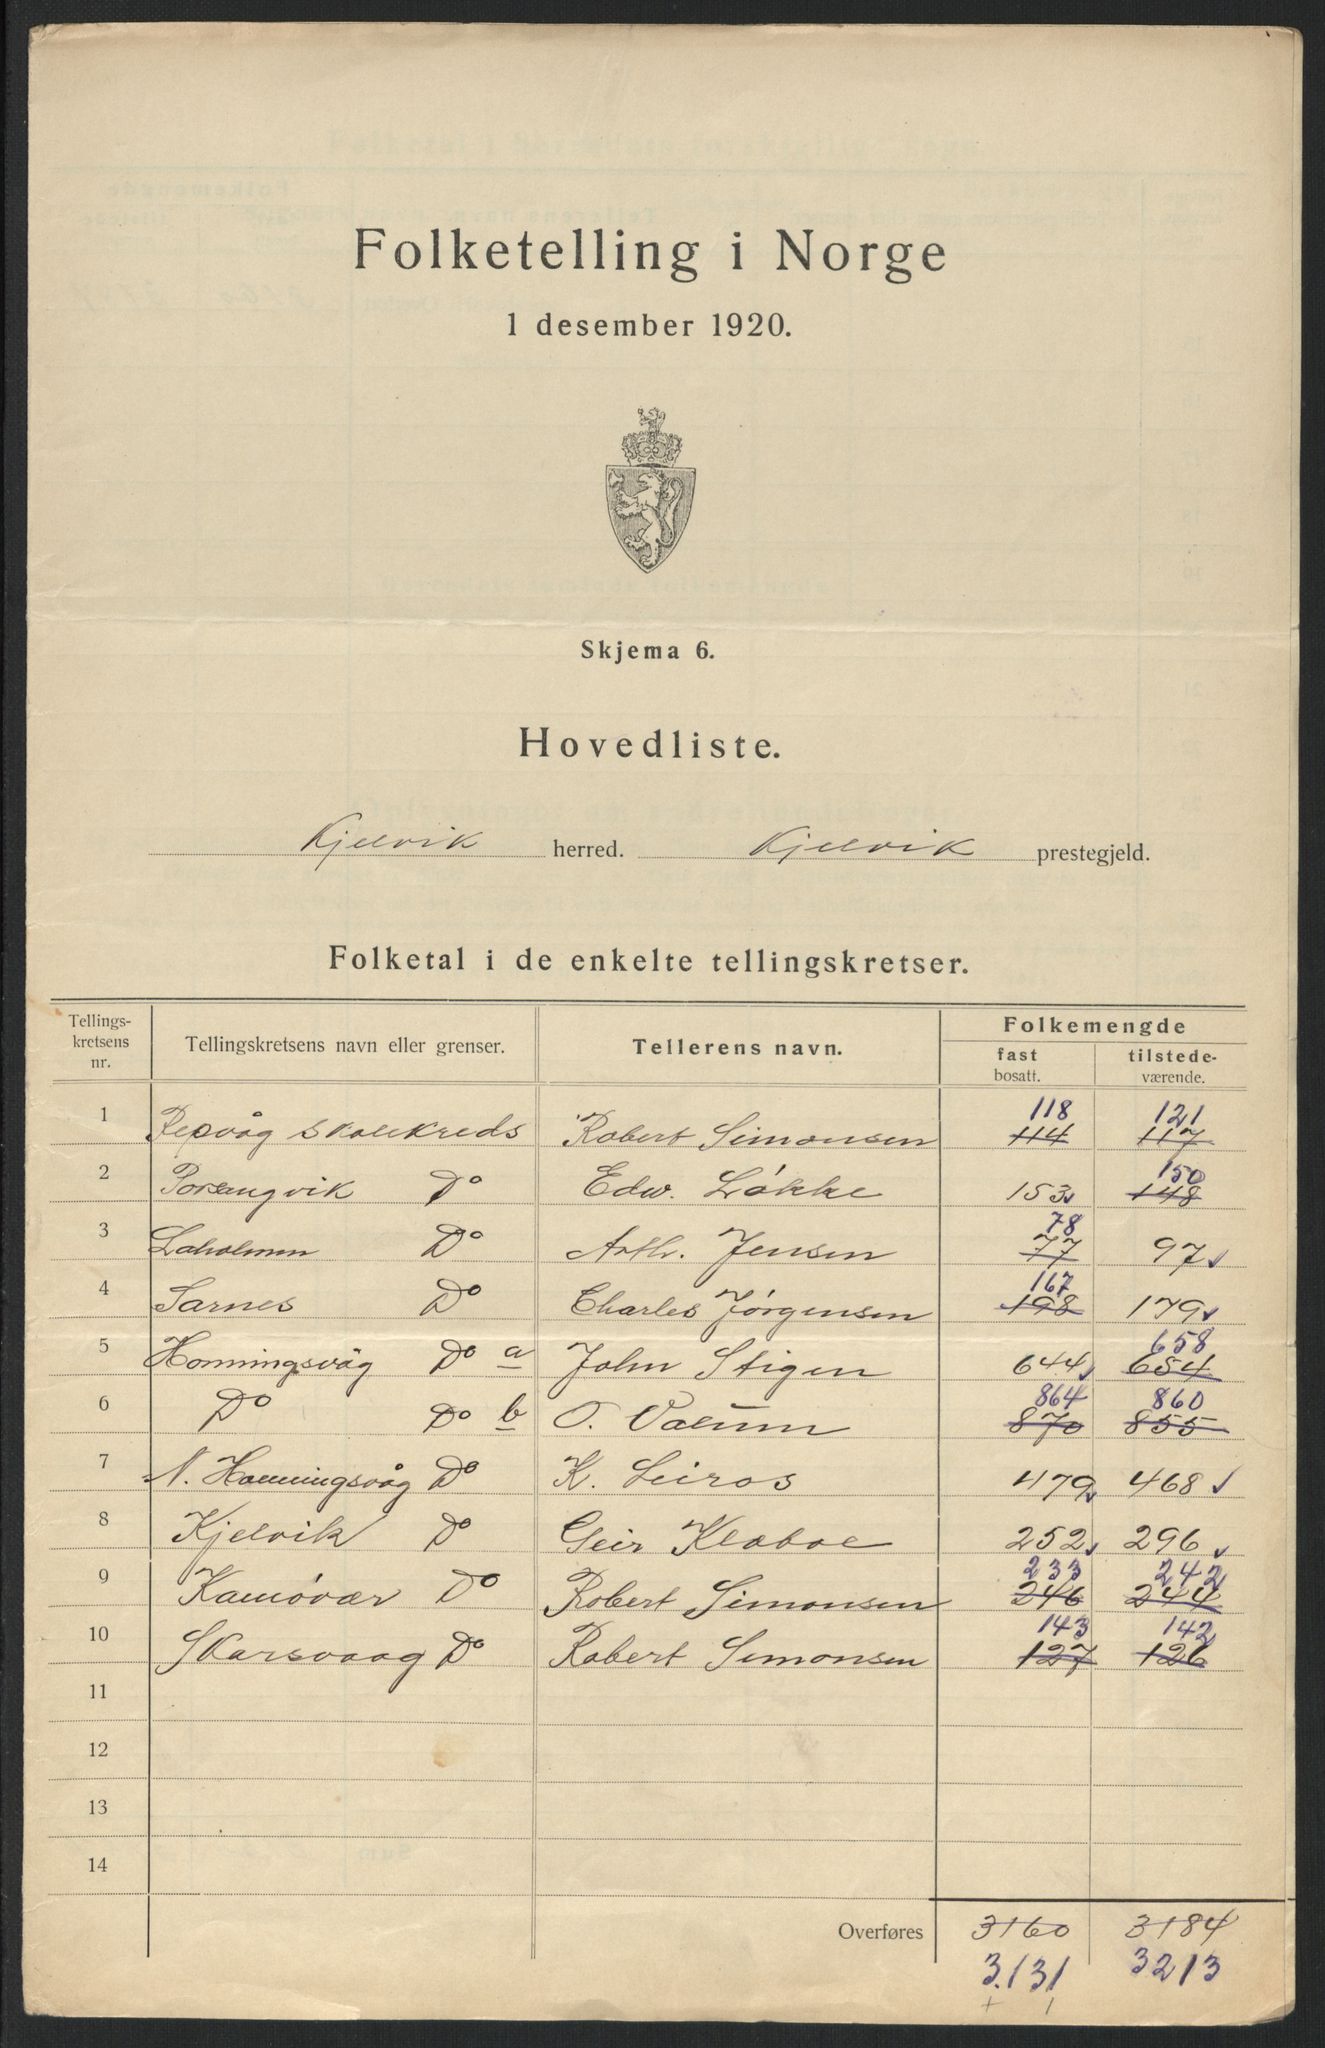 Folketelling i Norge
1 desember 1920.
Skjema 6.
Hovedliste.
Kjelvik herred. Kjelvik prestegjeld.
Folketal i de enkelte tellingskretser.
Tellings-kretsens nr. Tellingskretsens navn eller grenser. Tellerens navn. Folkemengde
fast bosatt. tilstede-værende.
118 121
1 Repvåg skolekreds Robert Simonsen 114 117
150
2 Porsangvik Do Edw. Løkke 153 148
78
3 Laholmen Do Arth. Jensen 77 97
167
4 Sarnes Do Charles Jørgensen 198 179
658
5 Honningsvåg Do a John Stigen 644 654
864 860
6 Do Do b O. Valum 870 855
7 N. Honningsvåg Do K. Leiros 479 468
8 Kjelvik Do Geir Klaboe 252 296
233 242
9 Kamøvær Do Robert Simonsen 246 244
143 142
10 Skarsvaag Do Robert Simonsen 127 126
11
12
13
14
Overføres 3160 3184
3.131 3213